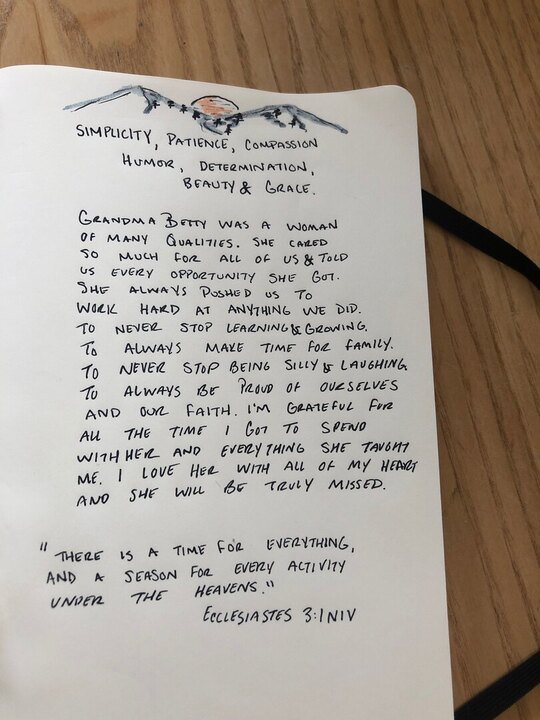 SIMPLICITY, PATIENCE, COMPASSION
HUMOR, DETERMINATION,
BEAUTY & GRACE.
GRANDMA BETTY WAS A WOMAN
OF MANY QUALITIES. SHE CARED
SO MUCH FOR ALL OF US & TOLD
US EVERY OPPORTUNITY SHE GOT.
SHE ALWAYS PUSHED US TO
WORK HARD AT ANYTHING WE DID.
TO NEVER STOP LEARNING & GROWING.
TO ALWAYS MAKE TIME FOR FAMILY.
TO NEVER STOP BEING SILLY & LAUGHING
TO ALWAYS BE PROUD OF OURSELVES
AND OUR FAITH. I'M GRATEFUL FOR
ALL THE TIME I GOT TO SPEND
WITH HER AND EVERYTHING SHE TAUGHT
ME. I LOVE HER WITH ALL OF MY HEART
AND SHE WILL BE TRULY MISSED.
"THERE IS A TIME FOR EVERYTHING,
AND A SEASON FOR EVERY ACTIVITY
UNDER THE HEAVENS."
ECCLESIASTES 3:1 NIV